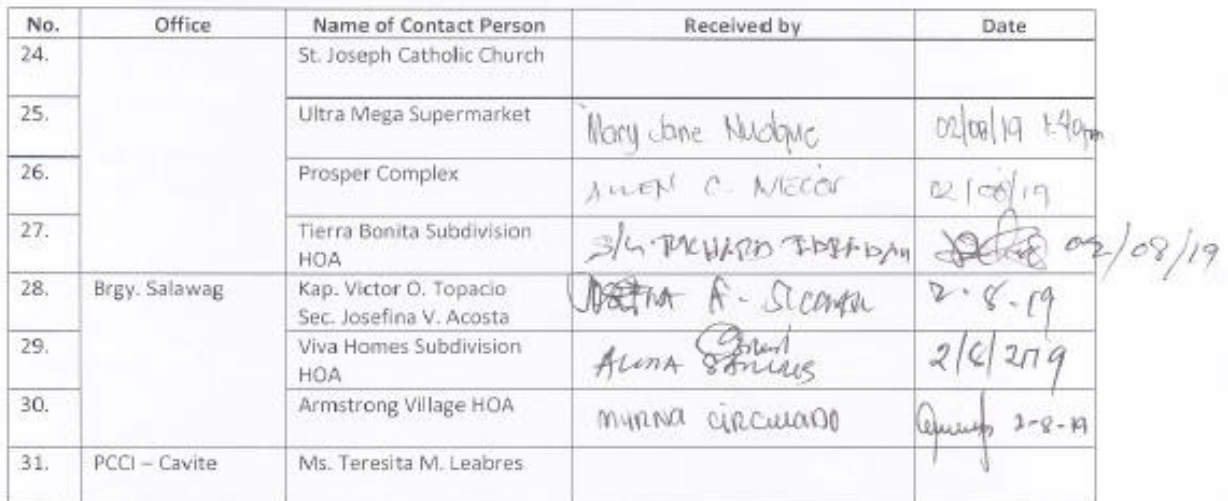 No. Office Name of Contact Person Received by Date
24. St. Joseph Catholic Church
25. Ultra Mega Supermarket Mary Jane 02/08/19 1:40pm
26. Prosper Complex ALLEN C. 02/08/19
27. Tierra Bonita Subdivision S/G RICHARD 02/08/19
HOA
28. Brgy. Salawag Kap. Victor O. Topacio A. 2-8-19
Sec. Josefina V. Acosta
29. Viva Homes Subdivision ALONA 2/8/2019
HOA
30. Armstrong Village HOA MYRNA CIRCULADO 2-8-19
31. PCCI – Cavite Ms. Teresita M. Leabres